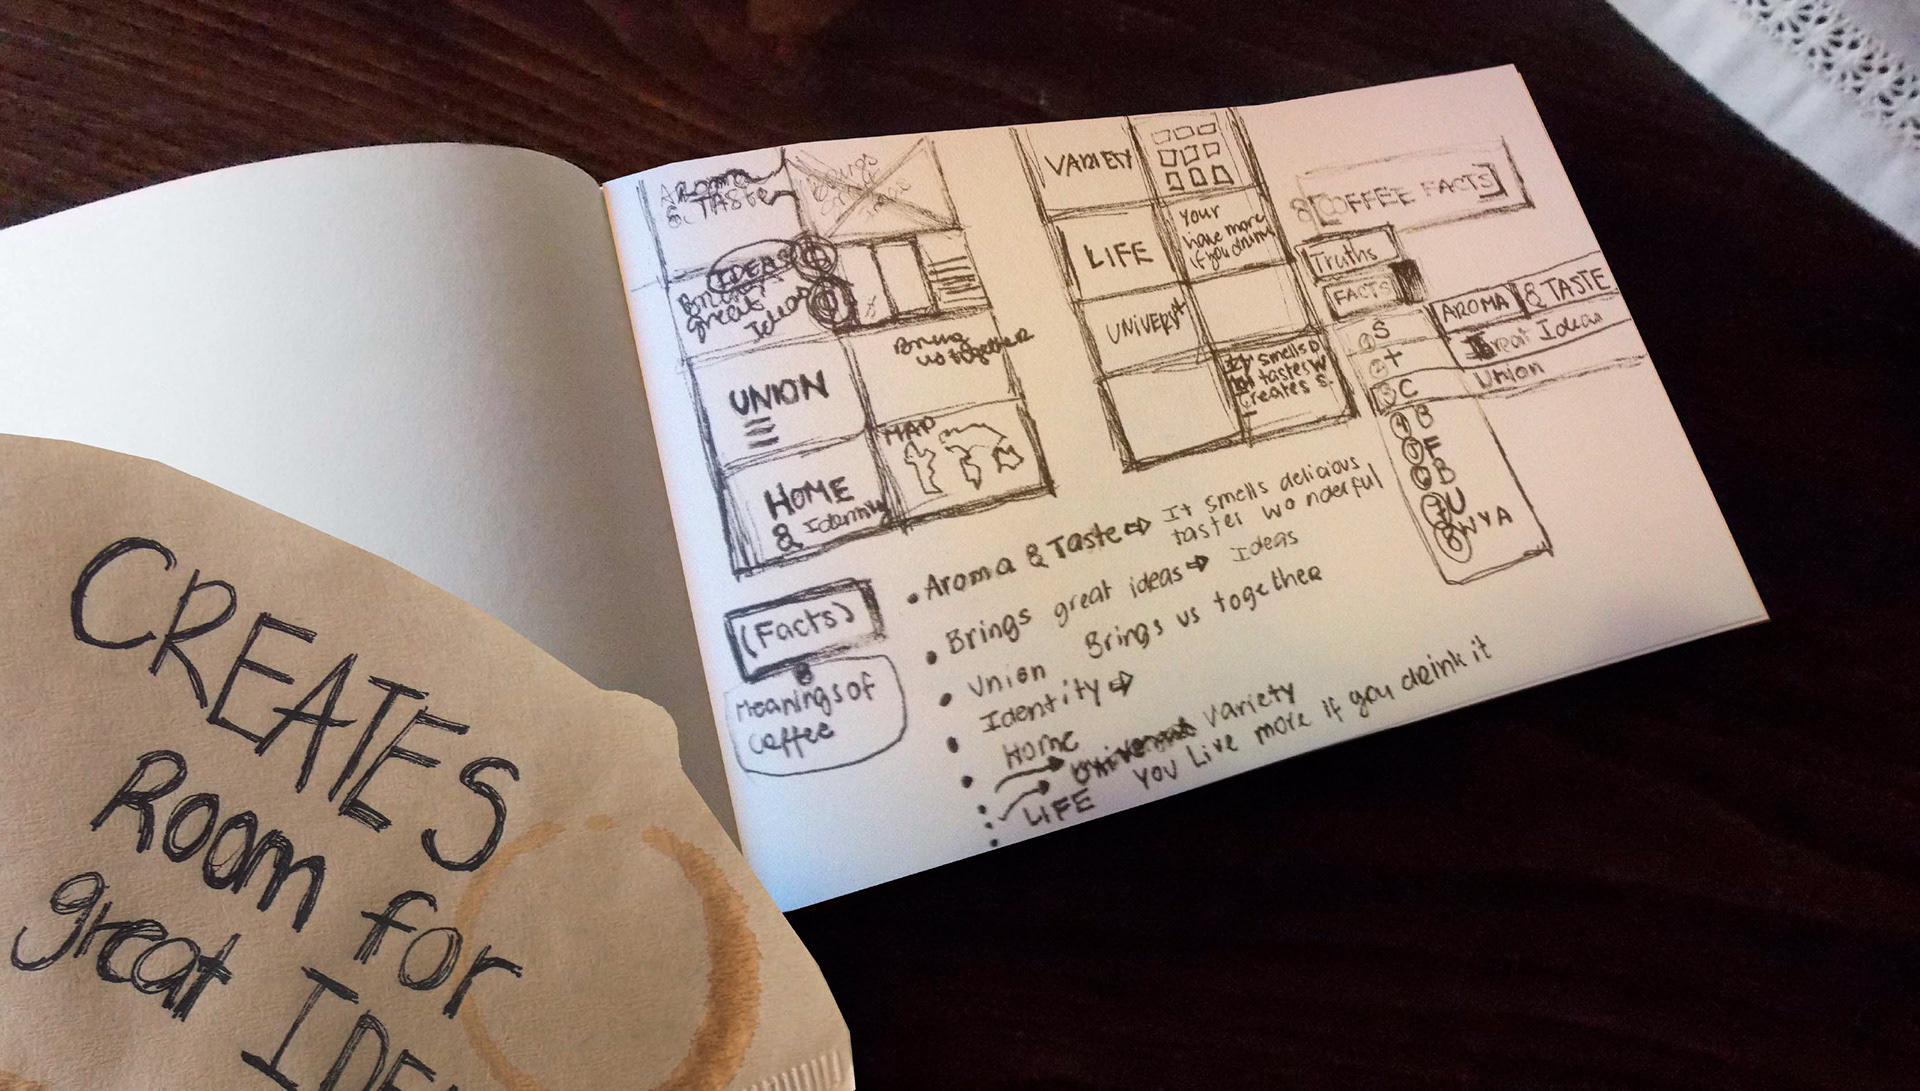 AROMA
& TASTE
IDEAS
Brings
great
Ideas
Bring
us together
UNION
HOME
& Identity
MAP
VARIETY
LIFE
Your
have more
if you drink
UNIVERS
It smells D
tastes W
creates S.
8 COFFEE FACTS
Truths
FACTS
AROMA & TASTE
Great Ideas
Union
1 S
2 T
3 C
4 B
5 F
6 B
7 U
8 WYA
(Facts)
Meanings of
Coffee
• Aroma & Taste ⇨ It smells delicious
tastes wonderful
• Brings great ideas ⇨ Ideas
• Union Brings us together
• Identity ⇨
• Home
• Variety
• LIFE You Live more if you drink it
CREATES
Room for
great IDEA